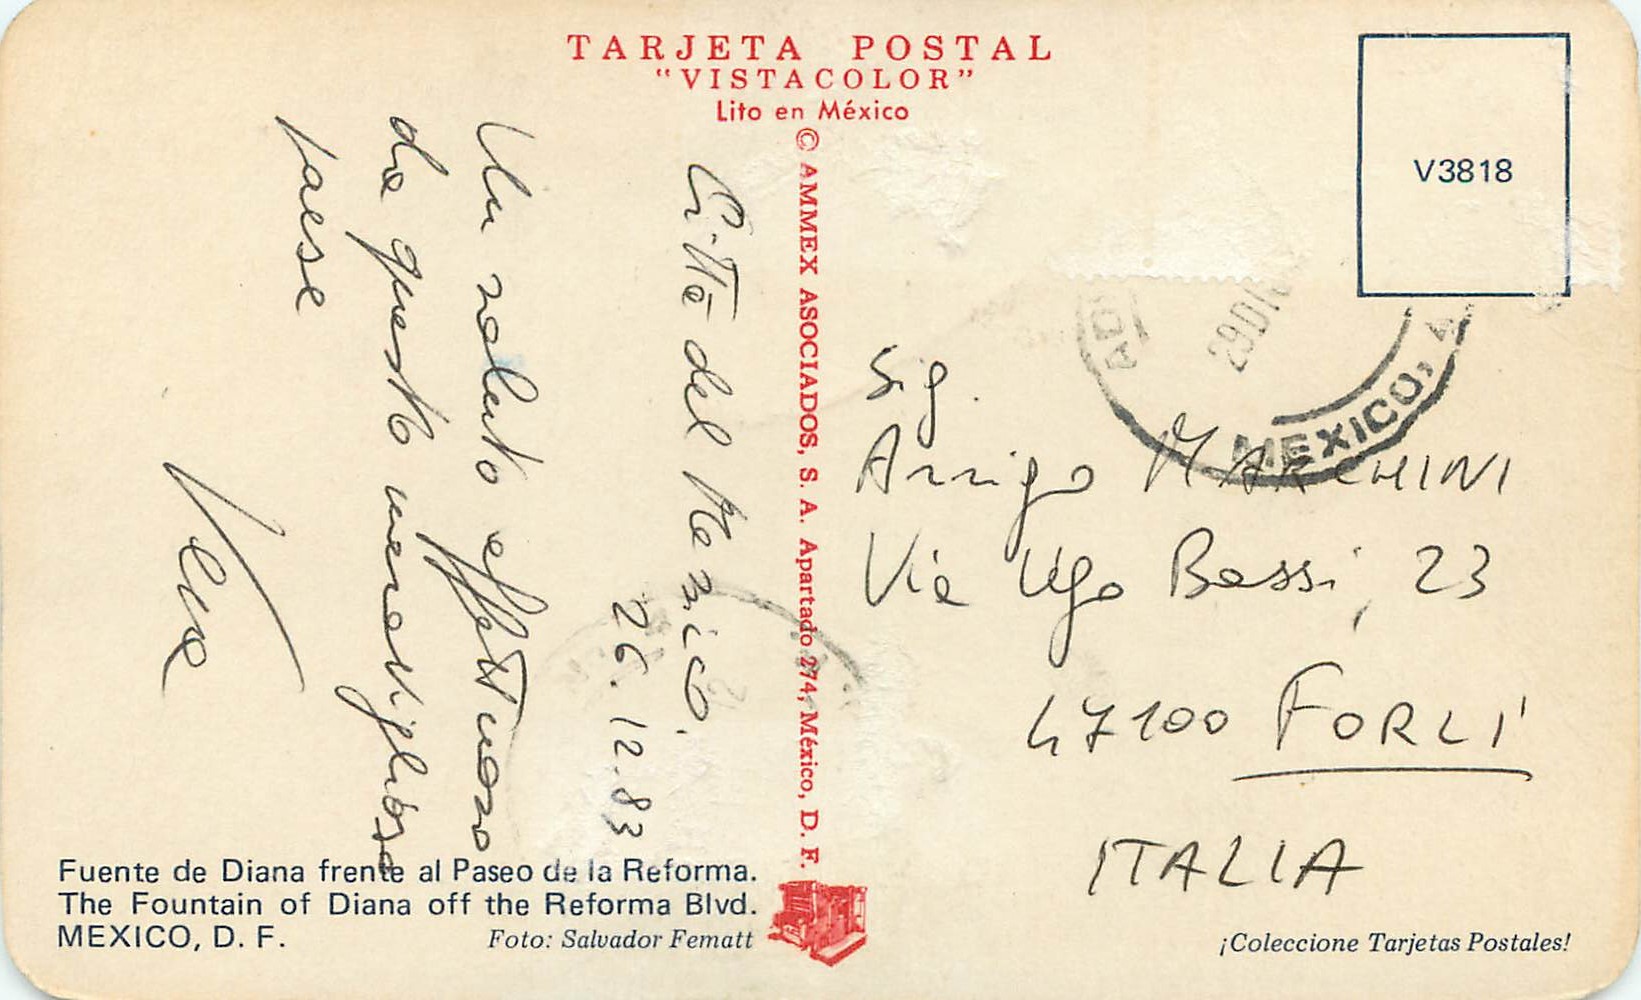 TARJETA POSTAL
"VISTACOLOR"
Lito en México
© AMMEX ASOCIADOS, S. A. Apartado 274, México, D. F.
V3818
Città del Messico.
26.12.83
Un saluto affettuoso
da questo meraviglioso
paese
Sig.
Arrigo MARCHINI
Via Ugo Bassi, 23
47100 FORLI'
ITALIA
MEXICO,
Fuente de Diana frente al Paseo de la Reforma.
The Fountain of Diana off the Reforma Blvd.
MEXICO, D. F.
Foto: Salvador Fematt
¡Coleccione Tarjetas Postales!